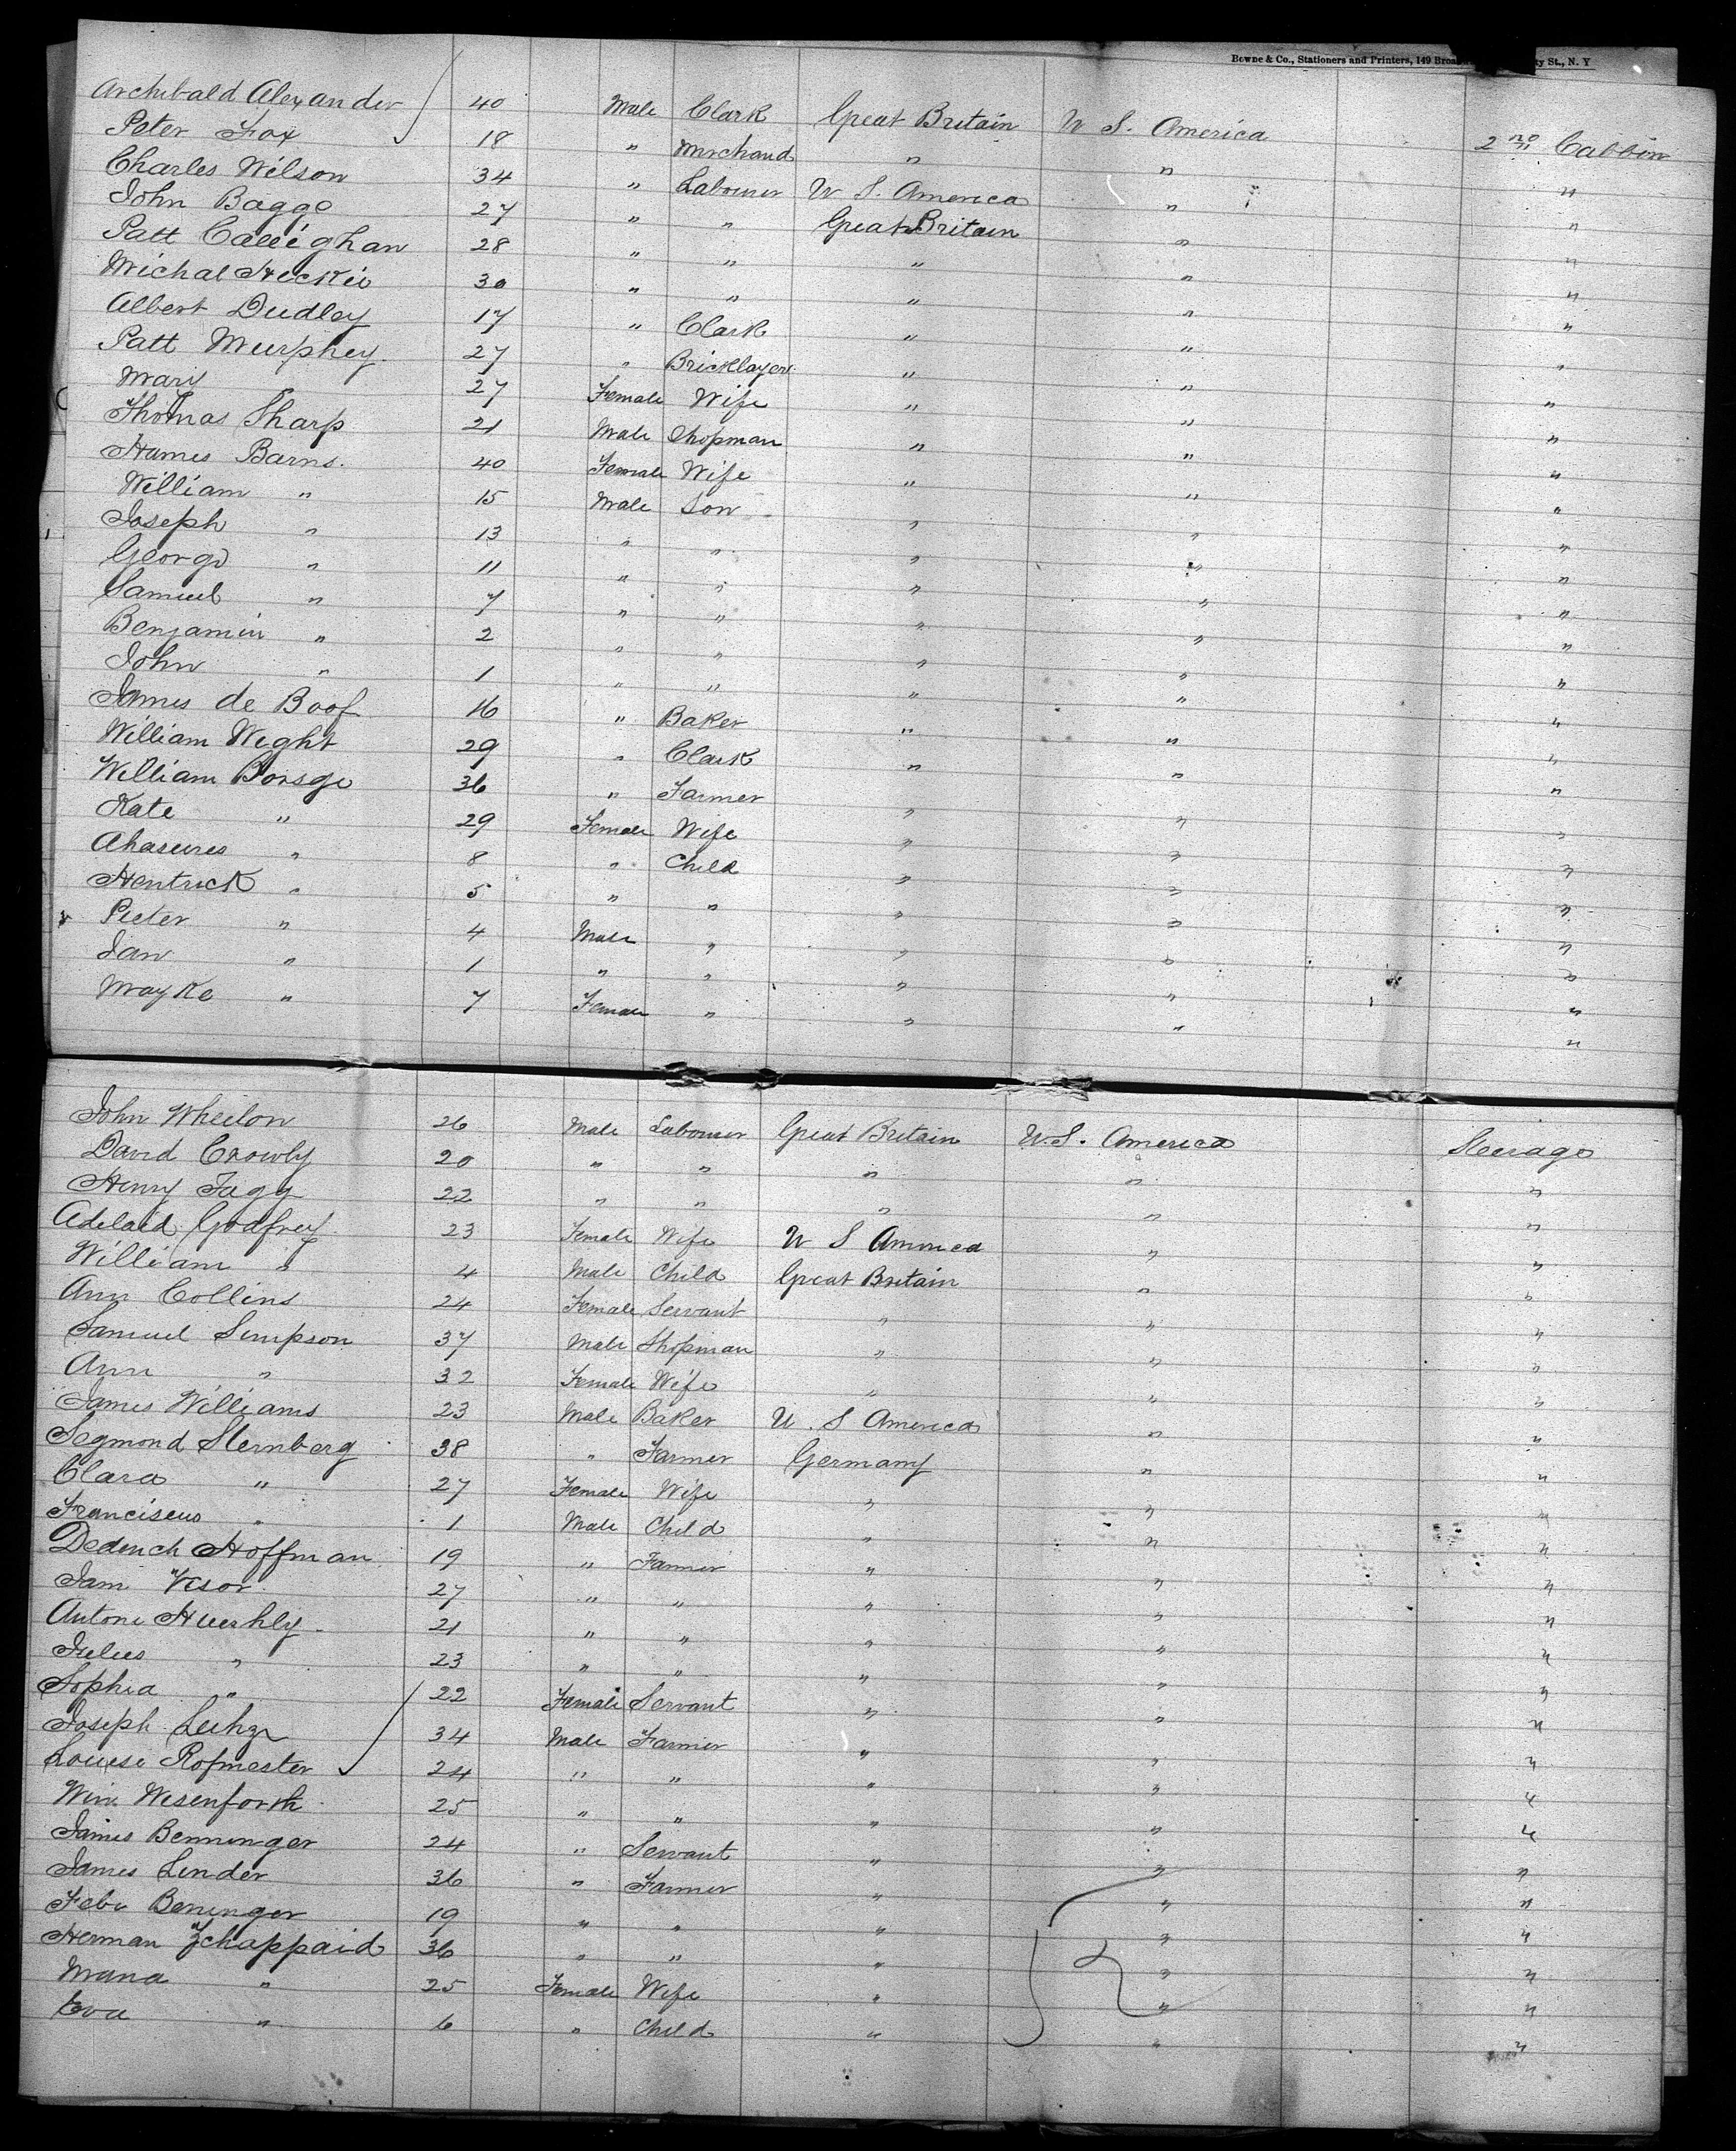 Bowne & Co., Stationers and Printers, 149 Broa ty St., N. Y
Archibald Alexander 40 Male Clark Great Britain U S. America 2nd Cabbin
Peter Fox 18 " Merchand " " "
Charles Wilson 34 " Labourer U S. America " "
John Bagge 27 " " Great Britain " "
Patt Calléghan 28 " " " " "
Michal Heckie 30 " " " " "
Albert Dudley 17 " Clark " " "
Patt Murphey. 27 " Bricklayer " " "
Mary 27 Female Wife " " "
Thomas Sharp 21 Male Shopman " " "
Hames Barns. 40 Female Wife " " "
William " 15 Male Son " " "
Joseph " 13 " " " " "
George " 11 " " " " "
Samuel " 7 " " " " "
Benjamin " 2 " " " " "
John " 1 " " " " "
James de Boof 16 " Baker " " "
William Wight 29 " Clark " " "
William Borsge 36 " Farmer " " "
Kate " 29 Female Wife " " "
Ahaseures " 8 " Child " " "
Hentrick " 5 " " " " "
Pieter " 4 Male " " " "
Jan " 1 " " " " "
Mayke " 7 Female " " " "
John Wheelon 26 Male Labourer Great Britain U.S. America Steerage
David Crowly 20 " " " " "
Henry Fagg 22 " " " " "
Adelaid Godfrey 23 Female Wife U S America " "
William " 4 Male Child Great Britain " "
Ann Collins 24 Female Servant " " "
Samuel Simpson 37 Male Shopman " " "
Ann " 32 Female Wife " " "
James Williams 23 Male Baker U. S America " "
Segmond Sternberg 38 " Farmer Germany " "
Clara " 27 Female Wife " " "
Franciscus " 1 Male Child " " "
Dederich Hoffman 19 " Farmer " " "
Jam Visor 27 " " " " "
Antone Huerhly 21 " " " " "
Julius " 23 " " " " "
Sophia " 22 Female Servant " " "
Joseph 34 Male Farmer " " "
Louise Rofmester 24 " " " " "
Wm. Wesenforth 25 " " " " "
James Benninger 24 " Servant " " "
James Linder 36 " Farmer " " "
Beninger 19 " " " " "
Herman Zchappaid 36 " " " " "
Maria " 25 Female Wife " " "
Eva " 6 " Child " " "